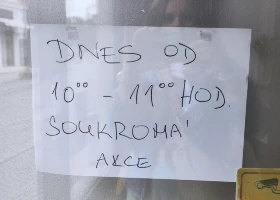 DNES OD
10⁰⁰ - 11⁰⁰ HOD.
SOUKROMÁ
AKCE